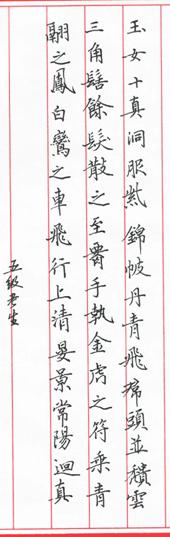 玉女十真洞服紫錦帔丹青飛帬頭並積雲
三角髻餘髮散之至要手執金虎之符乘青
翮之鳳白鸞之車飛行上清晏景常陽迴真
五級考生